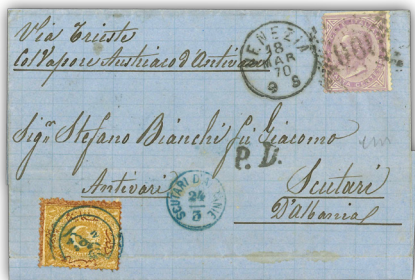 Via Trieste
Col Vapore Austriaco d'Antivari
VENEZIA
18
MAR
70
9 S
Sigr Stefano Bianchi fu Giacomo
P.D.
Antivari
Scutari
D'albania
SCUTARI D'ALBANIE
24
3